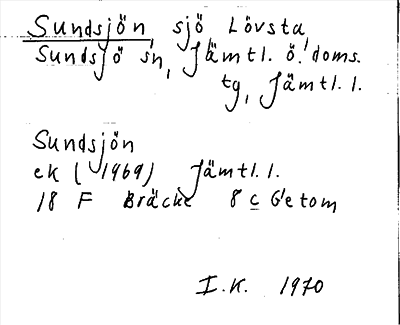 Sundsjön, sjö, Lövsta,
Sundsjö sn, Jämtl. ö. doms.
tg, Jämtl. l.
Sundsjön
ek (1969) Jämtl. l.
18 F Bräcke 8 c Getom
I.K. 1970